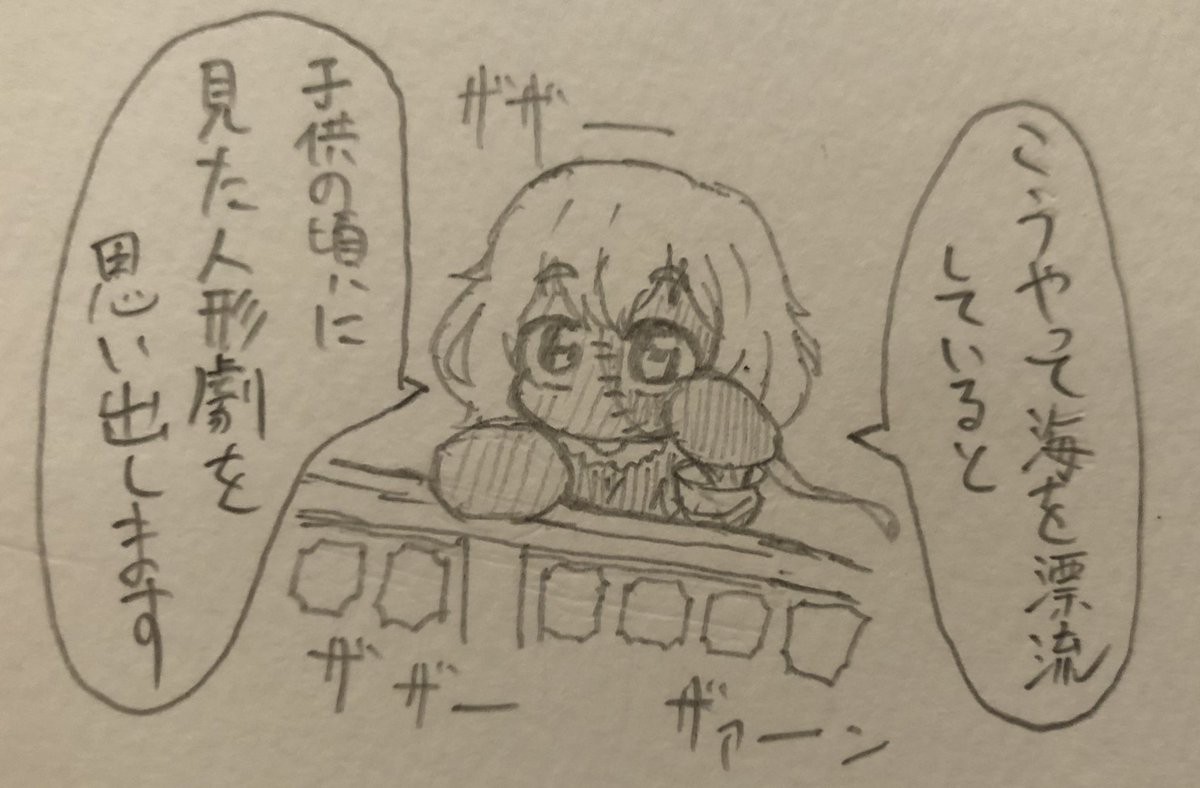 こうやって海を漂流
していると
ザザー
子供の頃に
見た人形劇を
思い出します
ザザー
ザァーン